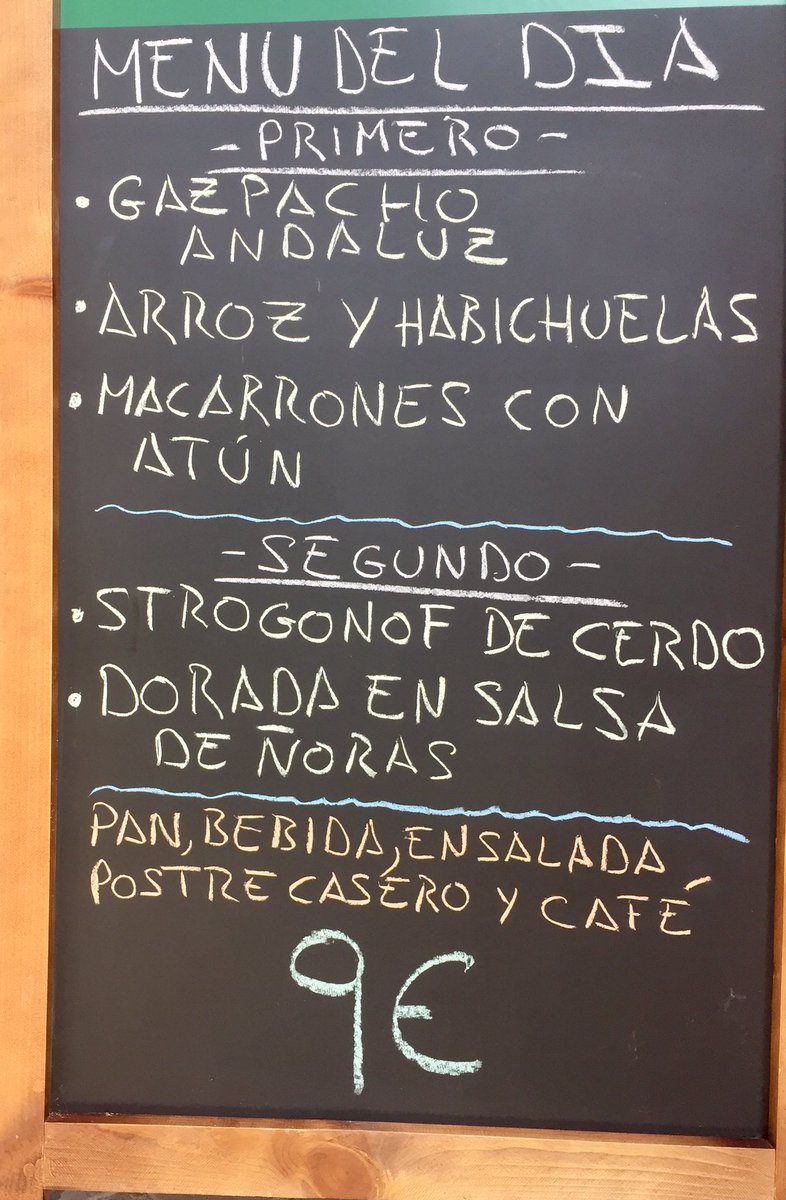 MENU DEL DIA
- PRIMERO -
• GAZPACHO
ANDALUZ
• ARROZ Y HABICHUELAS
• MACARRONES CON
ATÚN
- SEGUNDO -
• STROGONOF DE CERDO
• DORADA EN SALSA
DE ÑORAS
PAN, BEBIDA, ENSALADA
POSTRE CASERO Y CAFÉ
9€